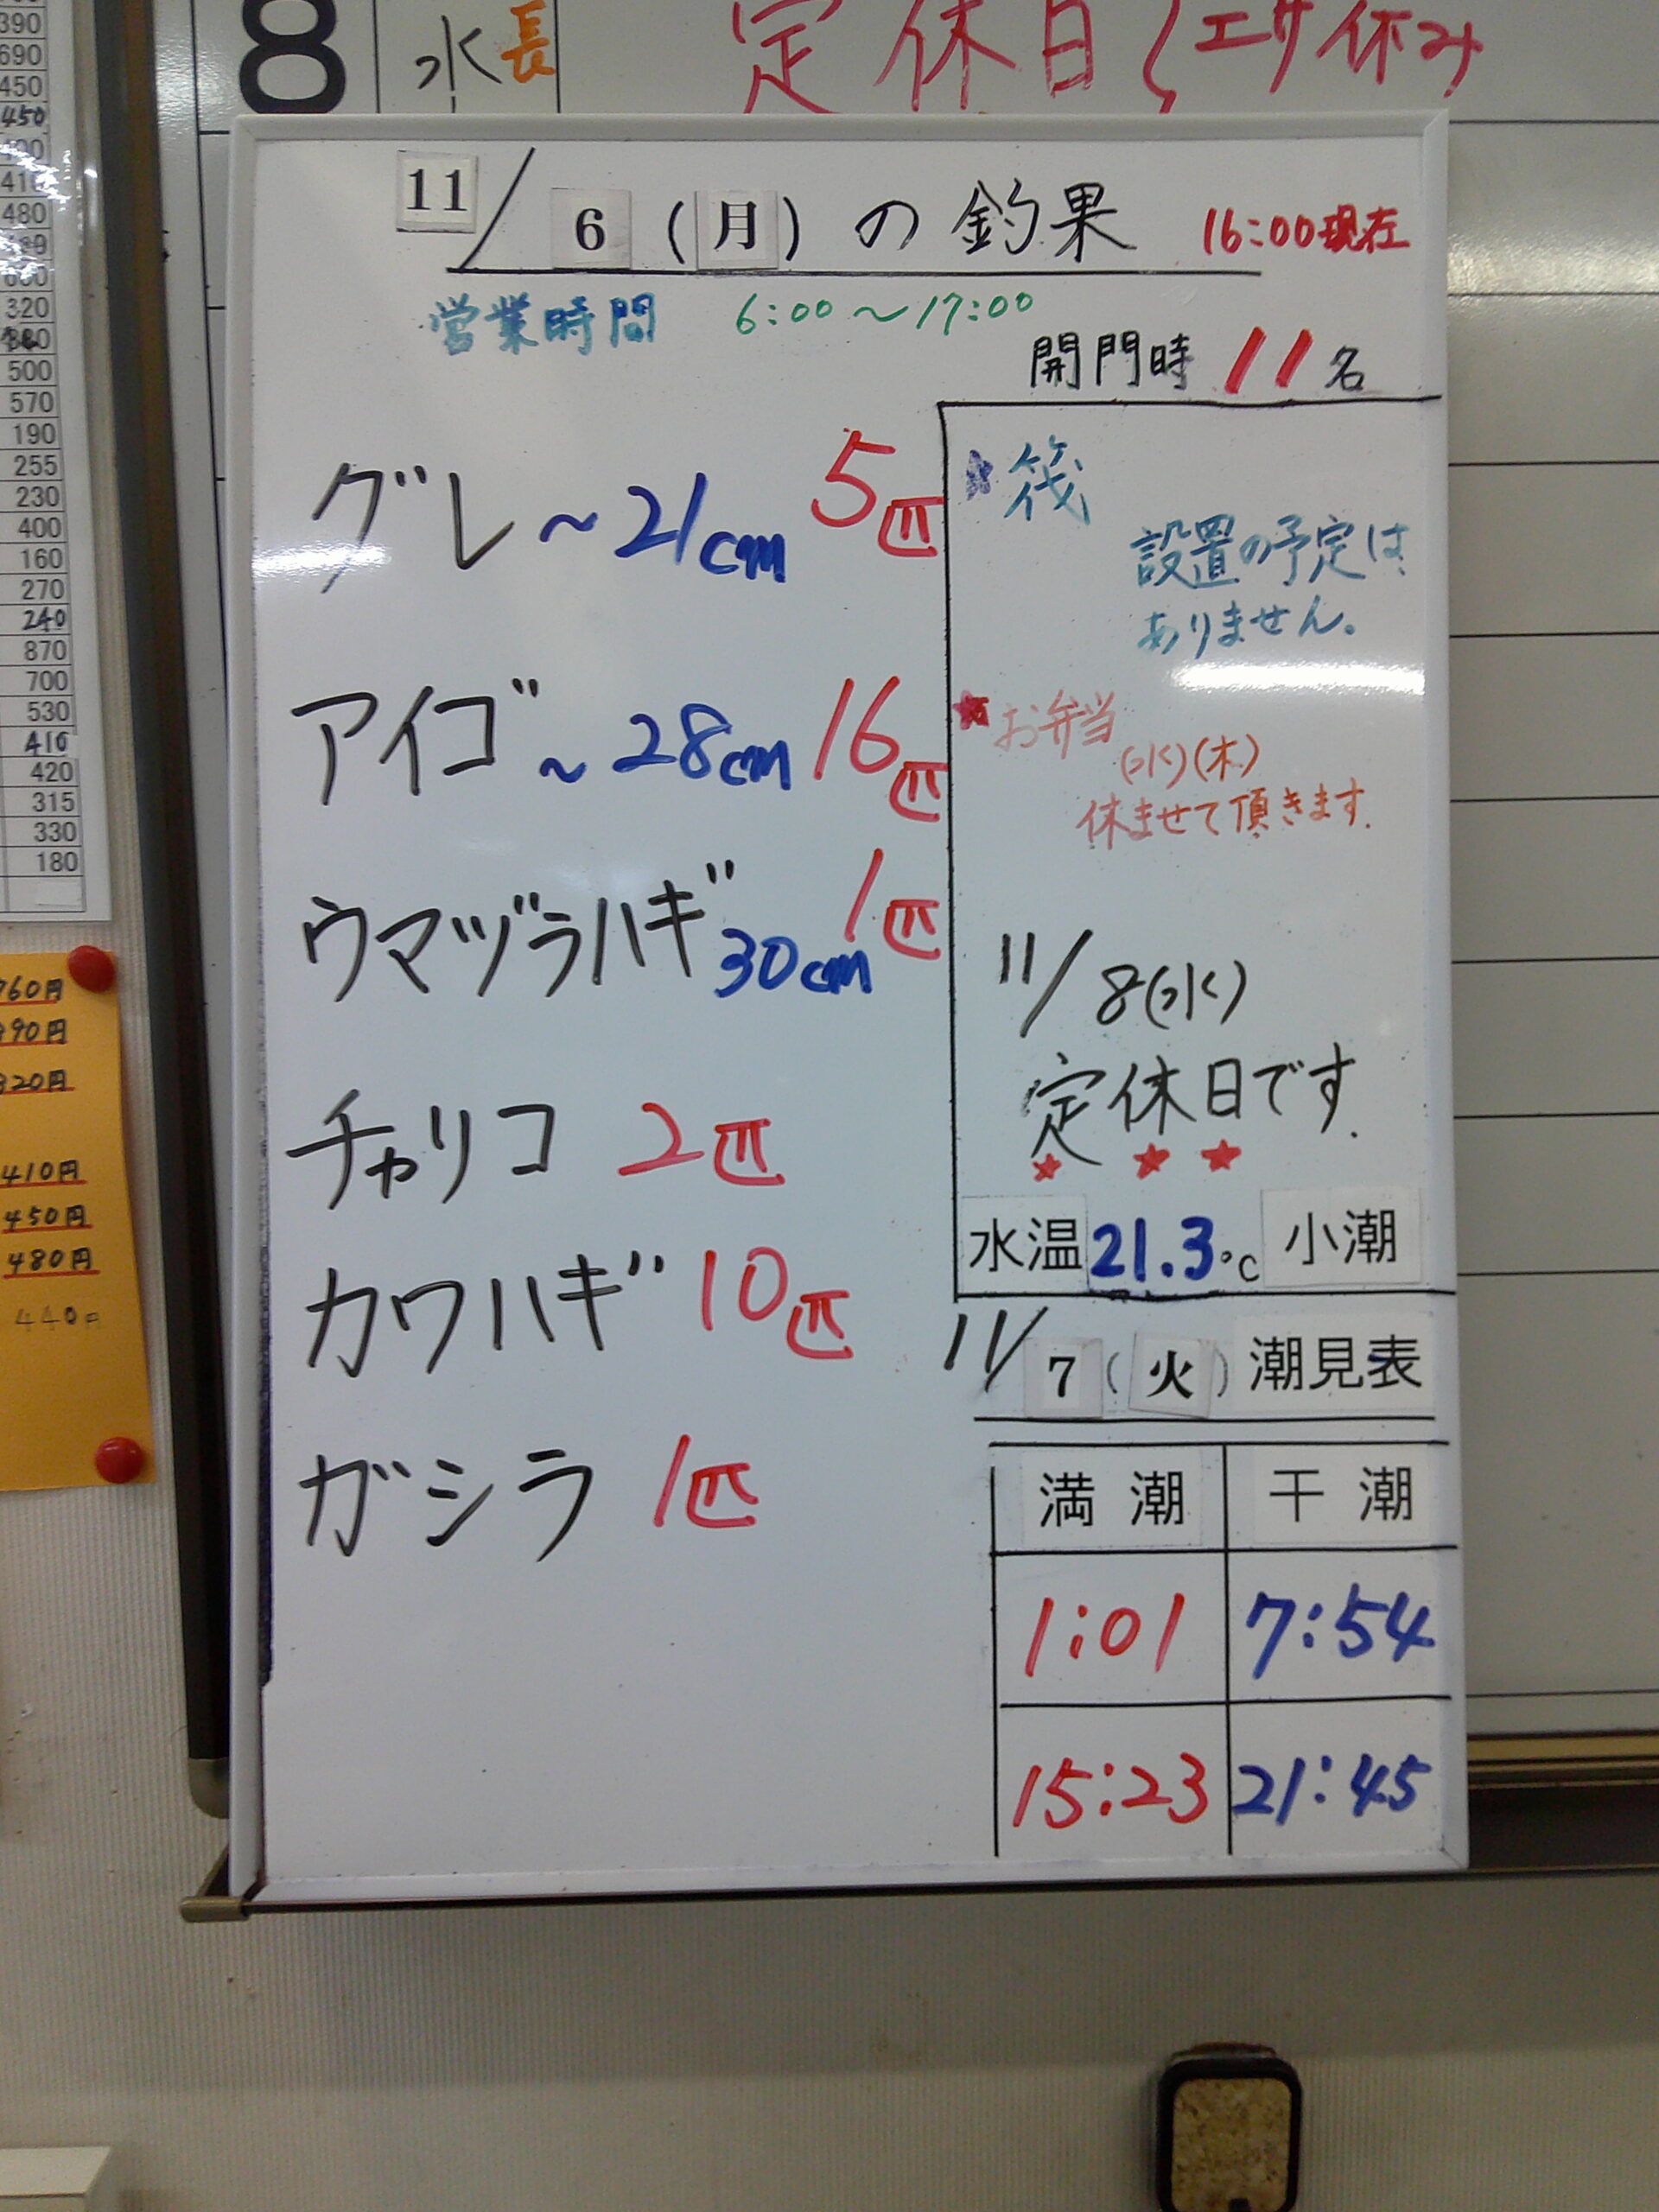 8 水 長 定休日 エサ休み
11/6(月)の釣果 16:00現在
営業時間 6:00～17:00
開門時 11名
グレ～21cm 5匹
アイゴ～28cm 16匹
ウマヅラハギ 30cm 1匹
チャリコ 2匹
カワハギ 10匹
ガシラ 1匹
★筏
設置の予定は
ありません。
★お弁当
(水)(木)
休ませて頂きます.
11/8(水)
定休日です.
★ ★ ★
水温 21.3℃ 小潮
11/7(火)潮見表
満潮 干潮
1:01 7:54
15:23 21:45
390
690
450
450
480
320
500
570
190
255
230
400
160
270
240
870
700
530
410
420
315
330
180
760円
410円
450円
480円
440円